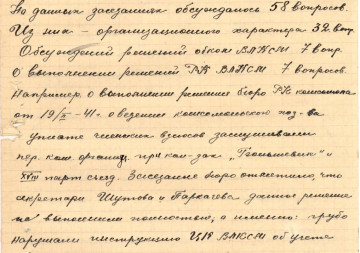 На данных заседаниях обсуждалось 58 вопросов.
Из них - организационного характера 32 вопр.
Обсуждений решений обком ВЛКСМ 7 вопр.
О выполнении решений РК ВЛКСМ 7 вопросов.
Например, о выполнении решения бюро РК комсомола
от 19/II - 41 г. о ведении комсомольского хоз-ва
уплате членских взносов заслушивали
пер. ком. организ. при кол-зах и
XVIII парт съезд. Заседание бюро отметило, что
секретари Шутова и данное решение
не выполнили полностью, а именно: грубо
нарушали инструкцию ЦК ВЛКСМ об учете